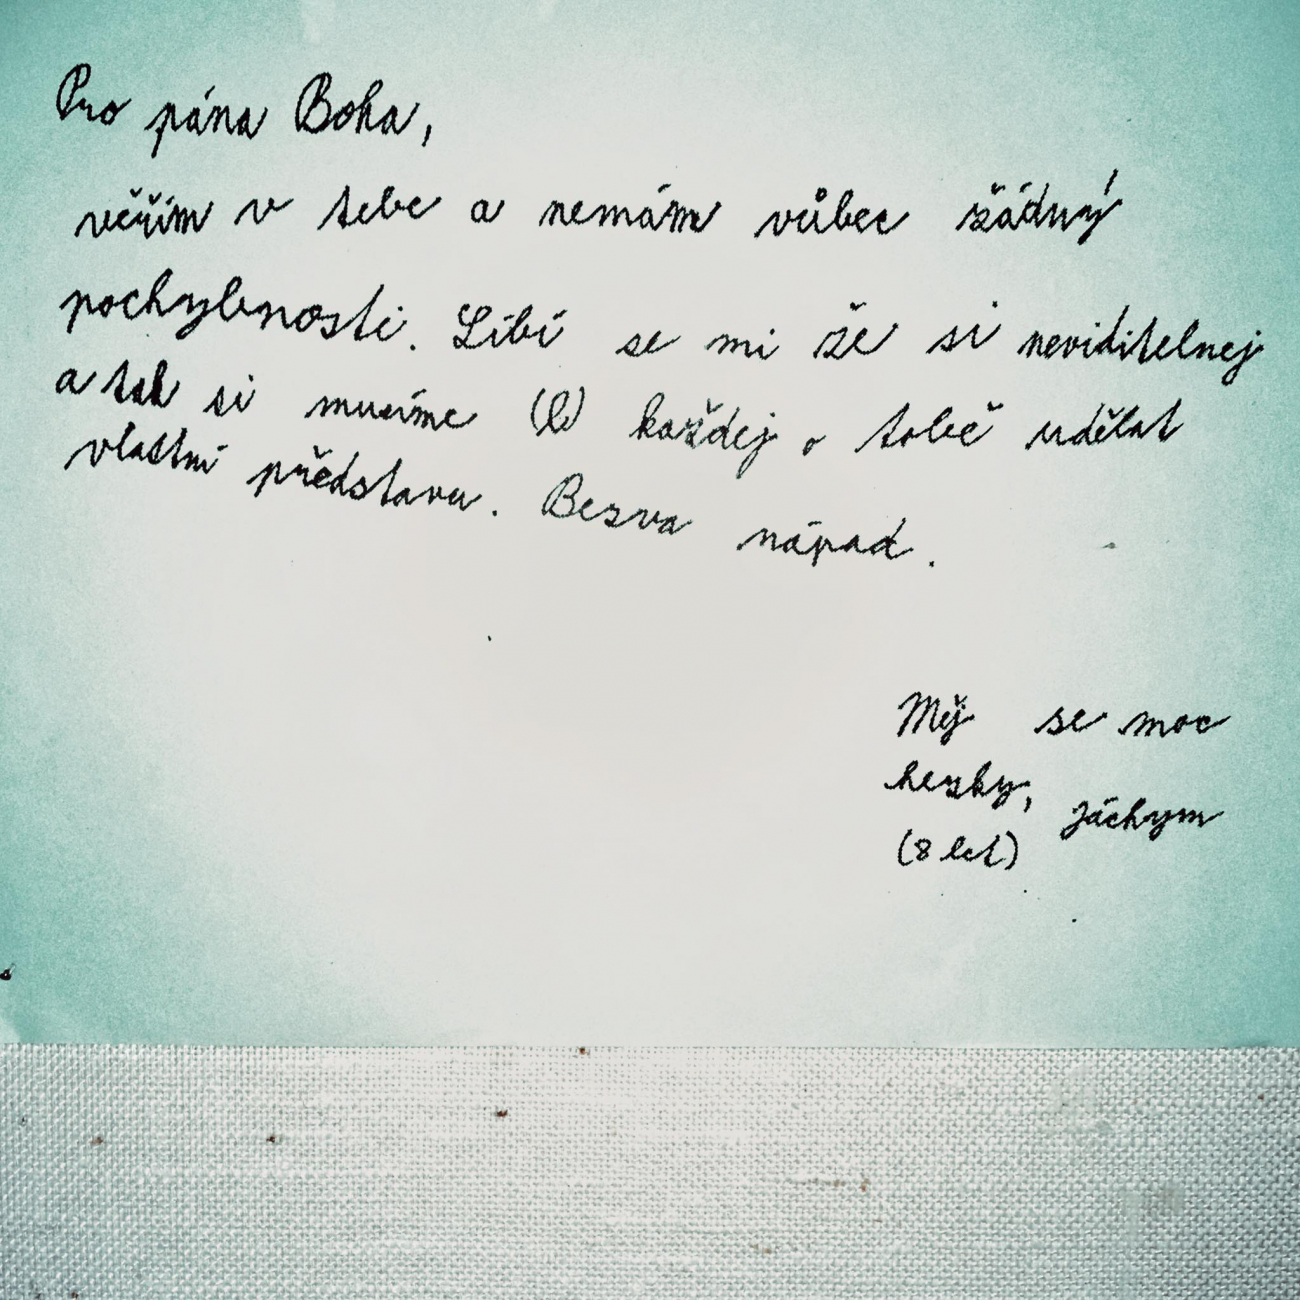 Pro pána Boha,
věřím v tebe a nemám vůbec žádný
pochybnosti. Líbí se mi že si neviditelnej
a tak si musíme každej o tobě udělat
vlastní představu. Bezva nápad.
Měj se moc
hezky, Jáchym
(8 let)